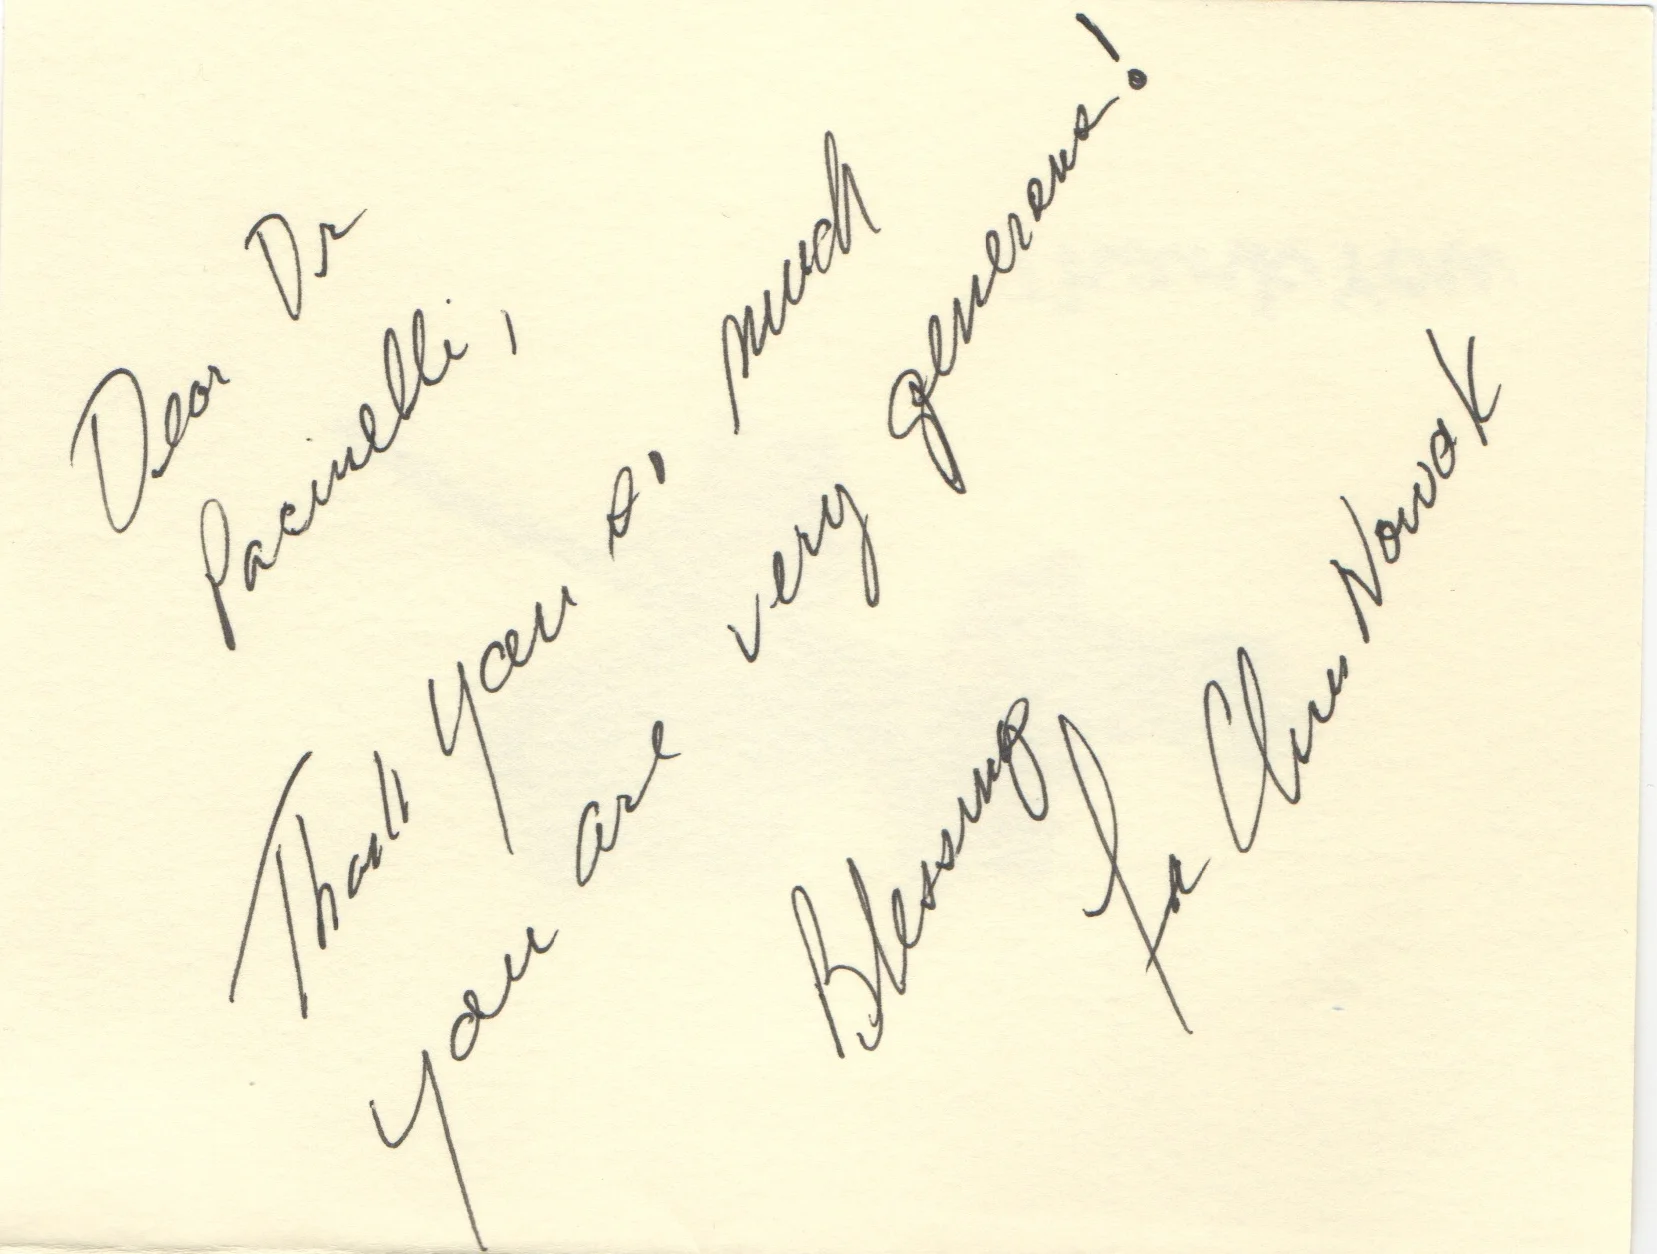 Dear Dr
Pacinelli,
Thank you so much
you are very generous!
Blessings
Fr Chris Nowak